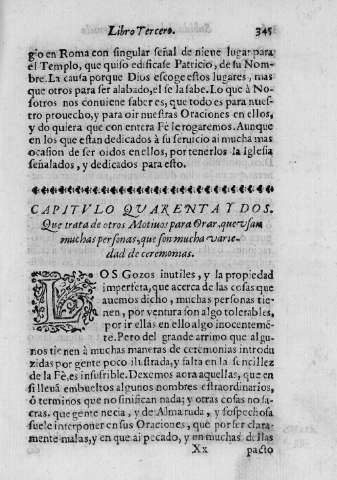 Libro Tercero. 345
gio en Roma con singular señal de nieue lugar para
el Templo, que quiso edificase Patricio, de su Nom-
bre. La causa porque Dios escoge estos lugares, mas
que otros para ser alabado, el se la sabe. Lo que à No-
sotros nos conuiene saber es, que todo es para nues-
tro prouecho, y para oir nuestras Oraciones en ellos,
y do quiera que con entera Fè le rogaremos. Aunque
en los que estan dedicados à su seruicio ai mucha mas
ocasion de ser oidos en ellos, por tenerlos la Iglesia
señalados, y dedicados para esto.
CAPITVLO QVARENTA Y DOS.
Que trata de otros Motiuos para Orar, que vsan
muchas personas, que son mucha varie-
dad de ceremonias.
LOS Gozos inutiles, y la propiedad
imperfeta, que acerca de las cosas que
auemos dicho, muchas personas tie-
nen, por ventura son algo tolerables,
por ir ellas en ello algo inocentemē-
te. Pero del grande arrimo que algu-
nos tienen à muchas maneras de ceremonias introdu
zidas por gente poco ilustrada, y falta en la sencillez
de la Fè, es insufrible. Dexemos aora aquellas, que en
si lleuā embueltos algunos nombres estraordinarios,
ò terminos que no sinifican nada; y otras cosas no sa-
cras, que gente necia, y de Alma ruda, y sospechosa
suele interponer en sus Oraciones, que por ser clara-
mente malas, y en que ai pecado, y en muchas dellas
Xx pacto